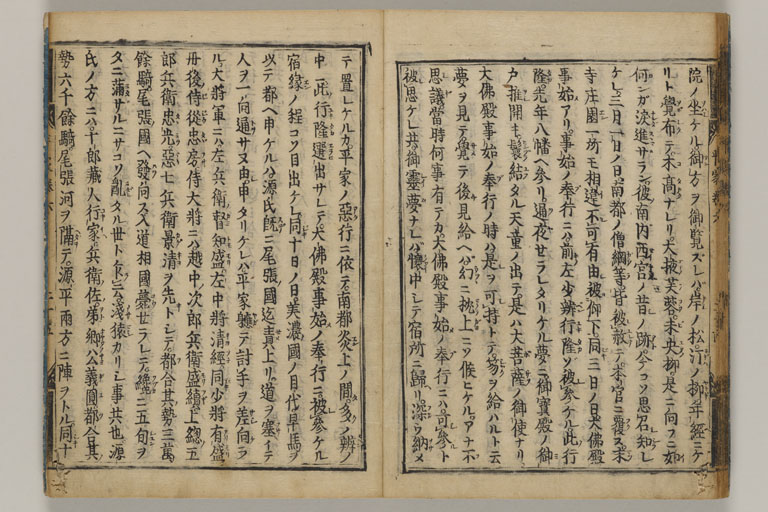 院ノ坐ケル御方ヲ御覽ズレバ岸ノ松汀ノ柳年經ニケ
リト覺テ木高ナレリ大掖芙蓉未央柳是ニ向フニ如
何ンガ淚進サラン彼南内西宮ノ昔ノ跡今コソ思召知レ
ケレ三月一日ノ日南都ノ僧綱等皆被赦テ本官ニ覆ス末
寺庄園一所モ相違不可有由被仰下同三日ノ日大佛殿
事始アリ事始ノ奉行ニハ前左少辨行隆ゾ被參ケル此行
隆先年八幡ヘ參リ通夜セラレタリケル夢ニ御寶殿ノ御
戸推開キ鬟結タル天童ノ出テ是ハ大菩薩ノ御使ナリ
大佛殿事始ノ奉行ノ時ハ是ヲ可持トテ笏ヲ給ハルト云
夢ヲ見テ覺テ後見給ヘハ幻ニ枕上ニゾ候ヒケルアナ不
思議當時何事有テカ大佛殿事始ノ奉行ニハ可參ト
被思ケレ共御靈夢ナレハ懷中シテ宿所ニ歸リ深ウ納メ
テ置レケルカ平家ノ惡行ニ依テ南都炎上ノ間多ノ辨ノ
中ニ此行隆選出サレテ大佛殿事始ノ奉行ニ被參ケル
宿緣ノ程コソ目出ケレ同十日ノ日美濃國ノ目代早馬ヲ
以テ都ヘ申ケルハ源氏旣ニ尾張國迄責上リ道ヲ塞イテ
人ヲ一向通サヌ由申タリケレハ平家軈テ討手ヲ差向ラ
ル大將軍ニハ左兵衛督知盛左中將淸經同少將有盛
丹後侍從忠房侍大將ニハ越中次郎兵衛盛續上總五
郎兵衛忠光惡七兵衛景清ヲ先トシテ都合其勢三萬
餘騎尾張國ヘ發向ス入道相國薨セラレテ纔ニ五旬ヲ
タニ滿サルニサコソ亂タル世ト云ナカラ淺猿カリシ事共也源
氏ノ方ニハ十郎藏人行家兵衛佐弟卿公義圓都合其
勢六千餘騎尾張河ヲ隔テ源平兩方ニ陣ヲトル同十